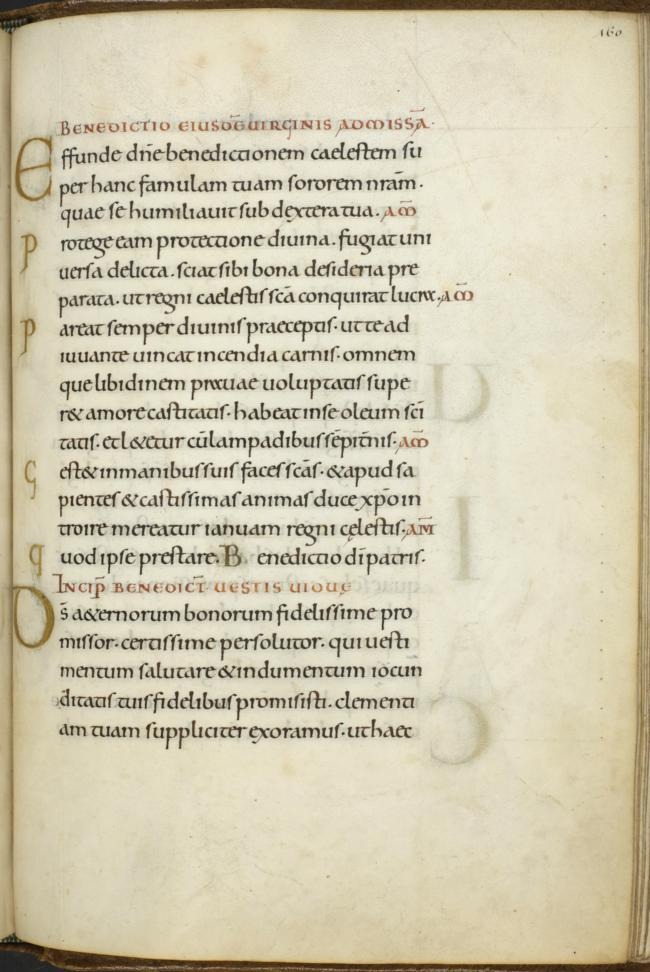 160
BENEDICTIO EIUSDĒ UIRGINIS AD MISSĀ·
Effunde dn̄e benedictionem caelestem su
per hanc famulam tuam sororem nr̄am·
quae se humiliauit sub dextera tua· AM̄
Protege eam protectione diuina· fugiat uni
uersa delicta· sciat sibi bona desideria pre
parata· ut regni caelestis sc̄a conquirat lucra· AM̄
Pareat semper diuinis praeceptis· ut te ad
iuuante uincat incendia carnis· omnem
que libidinem prauae uoluptatis supe
r& amore castitatis· habeat in se oleum sc̄i
tatis· et l&etur cū lampadibus sēpit̄nis· AM̄
Gest& in manibus suis faces sc̄as· & apud sa
pientes & castissimas animas duce xp̄o in
troire mereatur ianuam regni cęlestis· AM̄
quod ipse prestare· Benedictio dī patris·
INCIP̄ BENEDICT̄ UESTIS UIDUĘ
DS̄ a&ernorum bonorum fidelissime pro
missor· certissime persolutor· qui uesti
mentum salutare & indumentum iocun
ditatis tuis fidelibus promisisti· clementi
am tuam suppliciter exoramus· ut haec